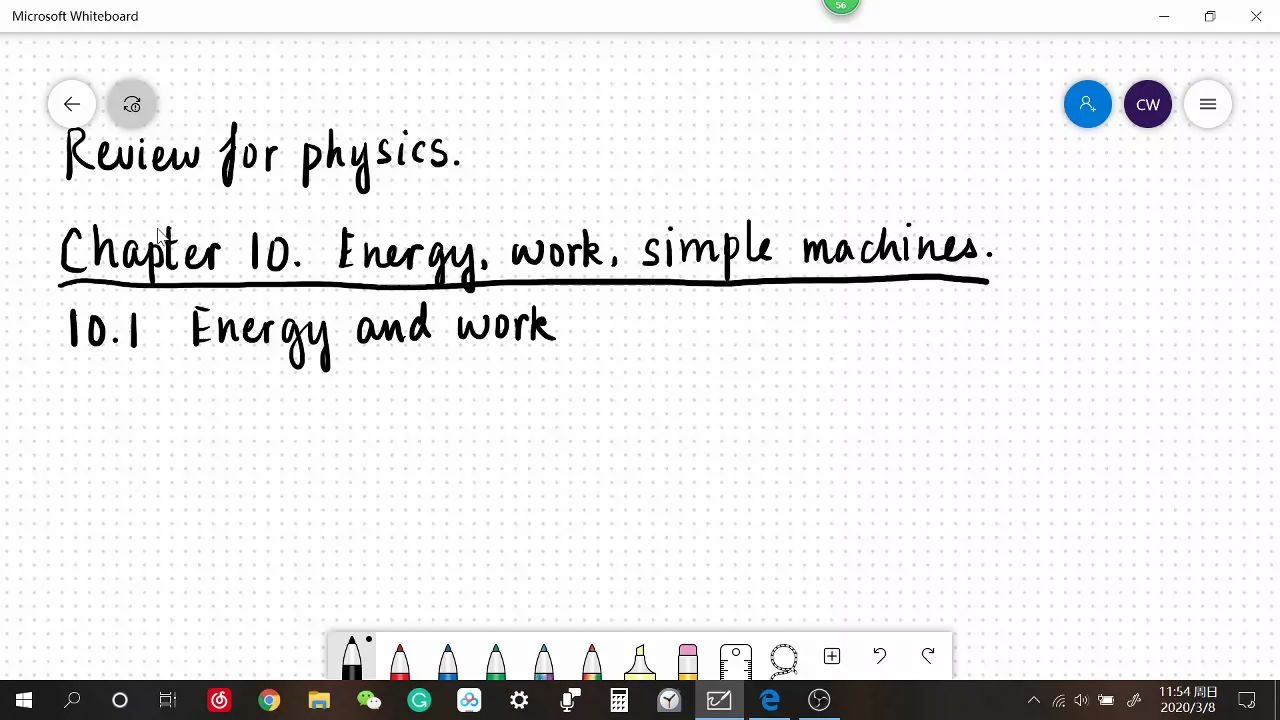 Microsoft Whiteboard
56
CW
Review for physics.
Chapter 10. Energy, work, simple machines.
10.1 Energy and work
11:54 周日
2020/3/8